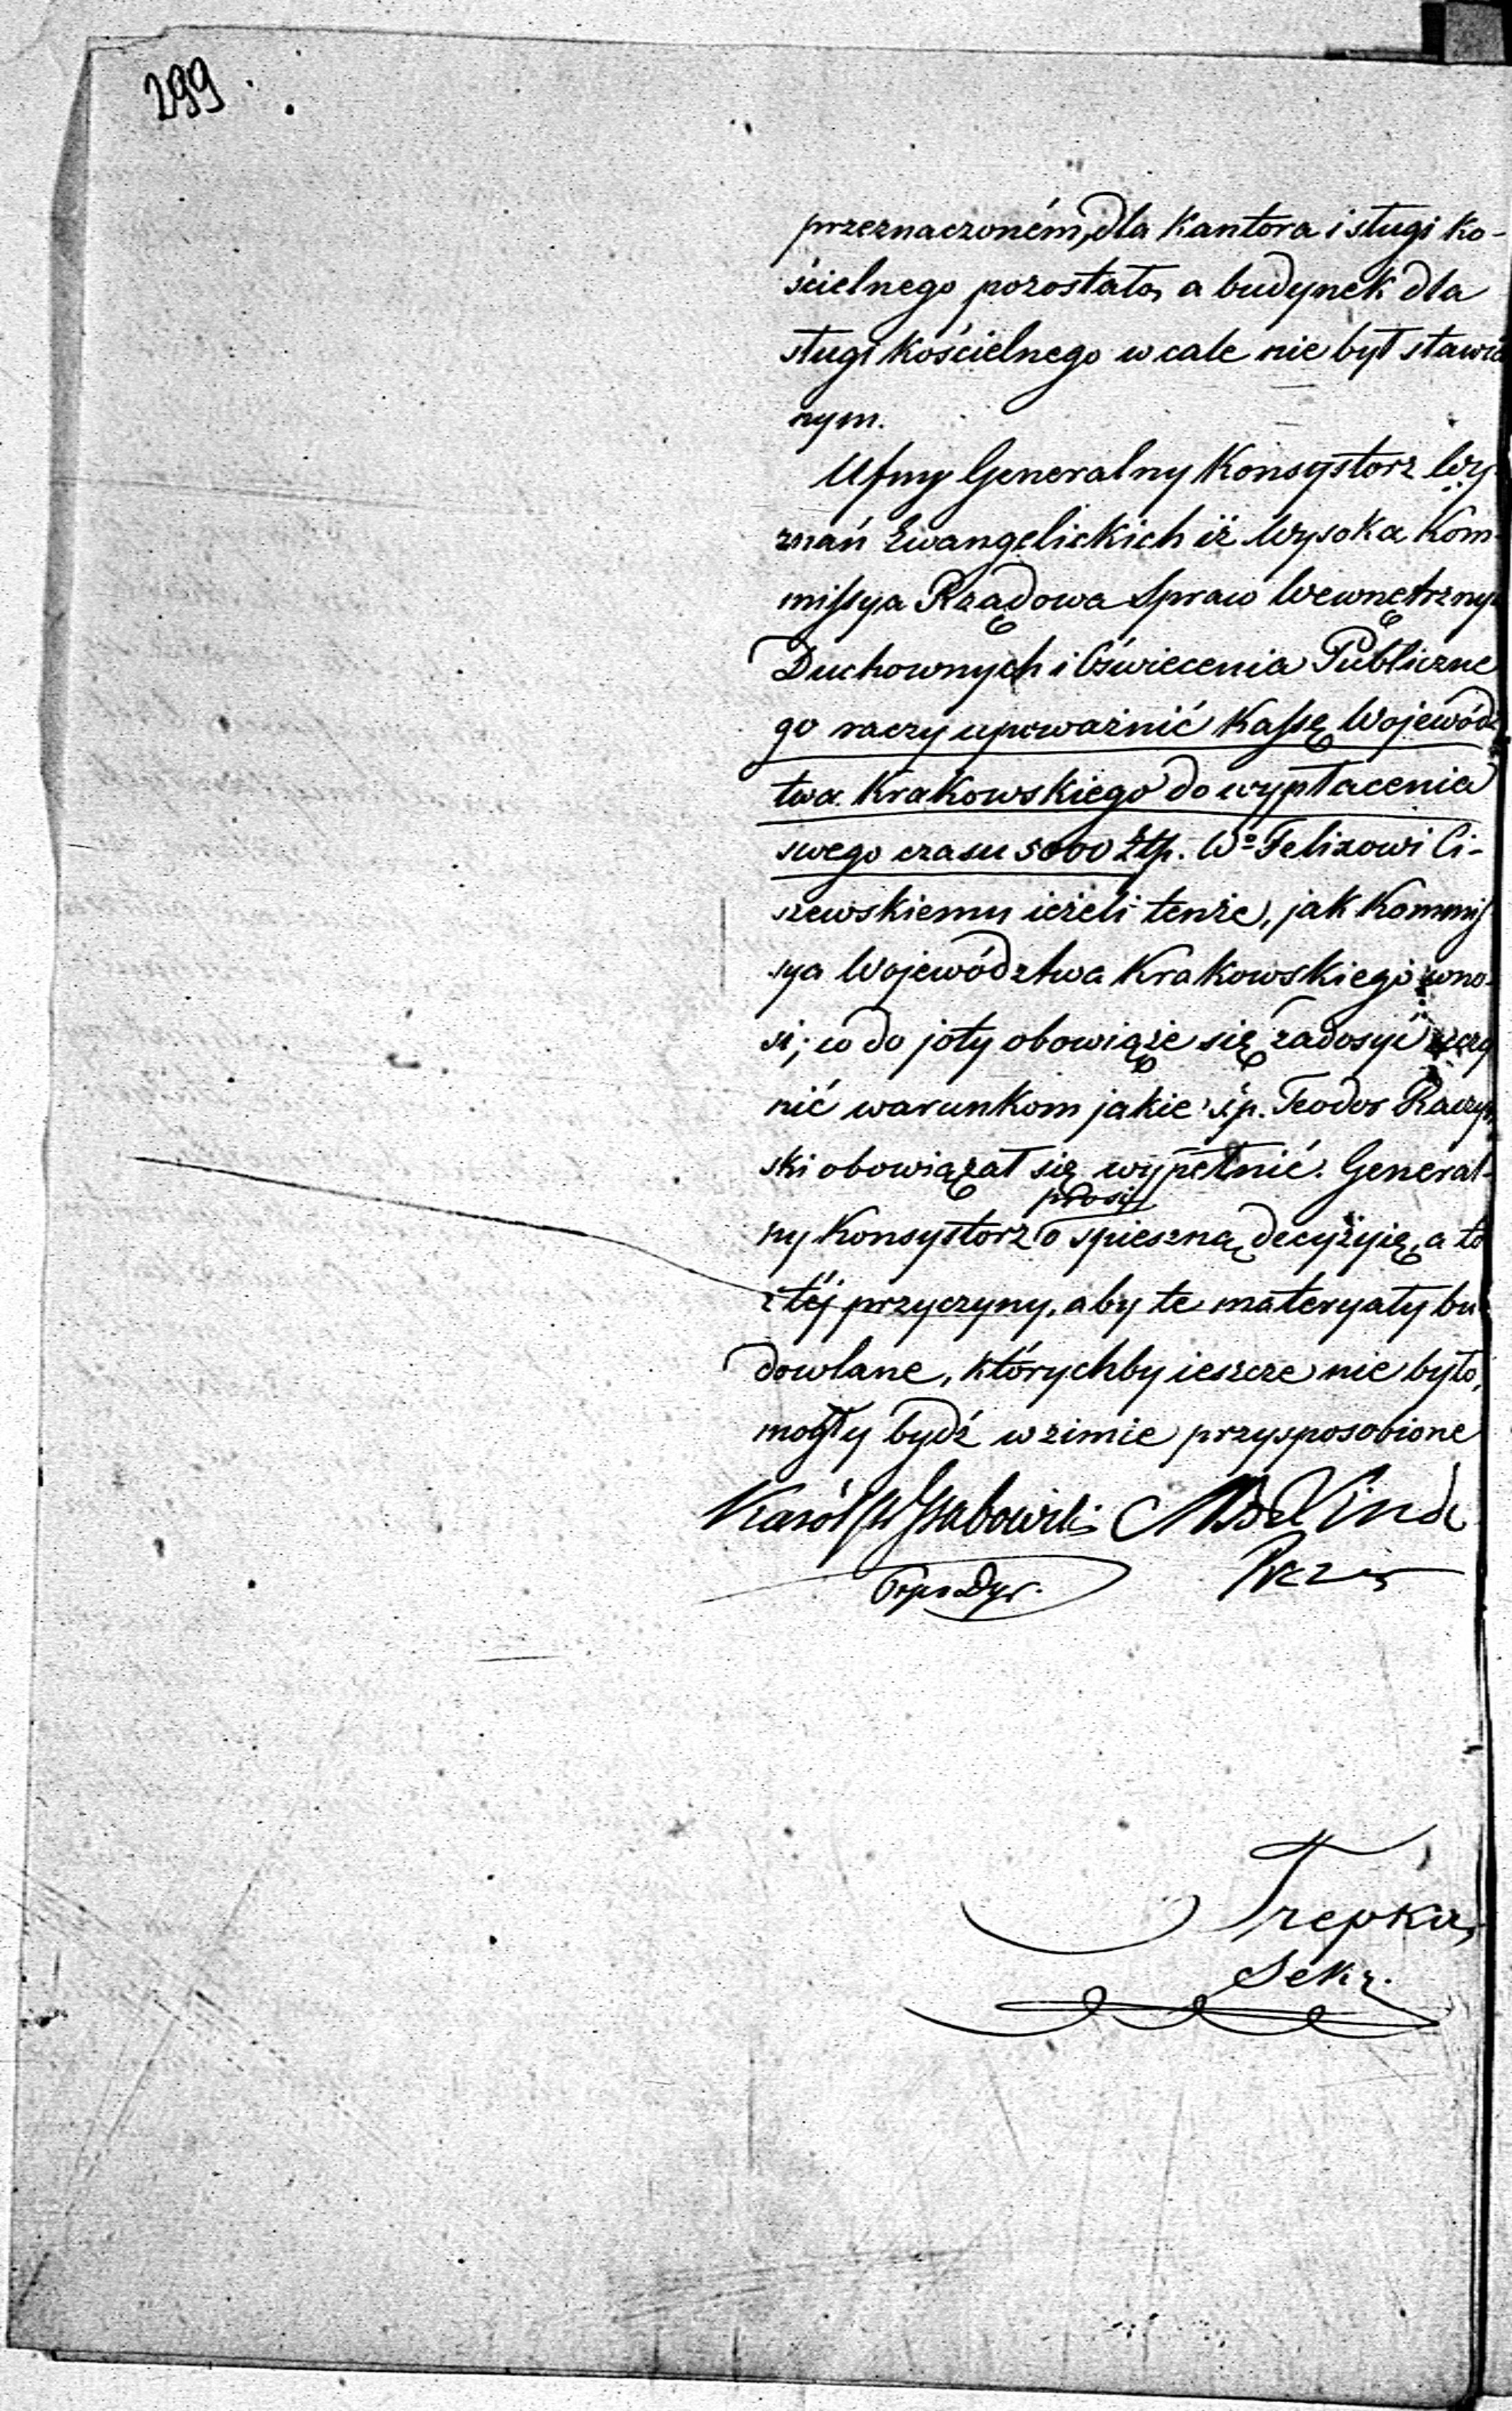 299
przeznaczoném, dla Kantora i sługi ko-
ścielnego pozostało, a budynek dla
sługi kościelnego w cale nie był stawio
nym.
Ufny Generalny Konsystorz Wy
znań Ewangelickich iż Wysoka Kom-
missya Rządowa Spraw Wewnętrznych
Duchownych i Oświecenia Publiczne
go raczy upoważnić Kassę Wojewódz
twa Krakowskiego do wypłacenia
swego czasu 5000 Złp. Wº Felixowi Ci-
szewskiemu ieżeli tenże, jak Kommis
sya Województwa Krakowskiego wno-
si; co do joty obowiąże się zadosyć uczy
nić warunkom jakie ś.p. Teodor Raczyń
ski obowiązał się wypełnić. General-
prosi
ny Konsystorz o spieszną decyzyię, a to
z téj przyczyny, aby te materyały bu
dowlane, którychby ieszcze nie było,
mogły bydź w zimie przysposobione
Karól Grabowski
Prezes
Trepka
Sekr.